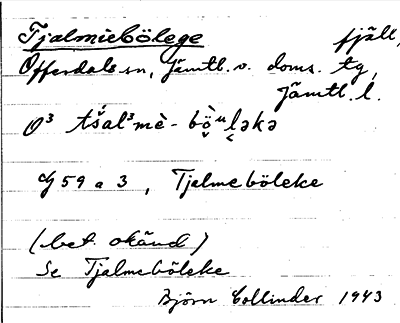 Tjalmiebölege fjäll,
Offerdals sn, Jämtl. v. doms. tg,
Jämtl. l.
O³ tšal³mè-bö̀ᵘləkə
Cf 59 a 3, Tjalmeböleke
(bet. okänd)
Se Tjalmeböleke
Björn Collinder 1943